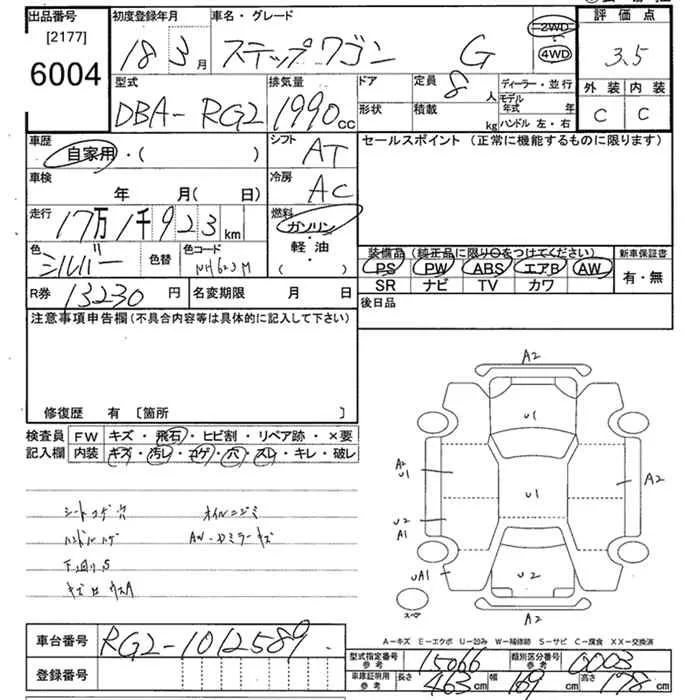 出品番号 初度登録年月 車名・グレード 評価点
[2177] 18 3月 ステップワゴン G 2WD 4WD 3.5
6004 型式 排気量 ドア 定員 8人 ディーラー・並行 外装 内装
DBA-RG2 1990cc 形状 積載 kg モデル年式 年 C C
ハンドル 左・右
車歴 自家用・( ) シフト AT セールスポイント (正常に機能するものに限ります)
車検 年 月( 日) 冷房 AC
走行 17万1千923km 燃料 ガソリン・軽・油 ( )
色 シルバー 色替 色コード NH623M
装備品 (純正品に限り○をつけてください) 新車保証書
PS PW ABS エアB AW 有・無
SR ナビ TV カワ
R券 13230円 名変期限 月 日 後日品
注意事項申告欄(不具合内容等は具体的に記入して下さい)
修復歴 有 [箇所 ]
検査員記入欄 FW キズ・飛石・ヒビ割・リペア跡・×要
内装 キズ・汚レ・コゲ・穴・スレ・キレ・破レ
A2
U1
A2 U1 U1 A2
U2 A1
UA1 U2
A2
シートコゲ穴 オイルニジミ
ハンドルハゲ AW・ドミラーキズ
下回りS
A-キズ E-エクボ U-凹み W-補修跡 S-サビ C-腐食 XX-交換済
車台番号 RG2-1012589
登録番号
型式指定番号 参考 15066 類別区分番号 参考 0003
車庫証明用 参考 長さ 463cm 幅 169cm 高さ 178cm